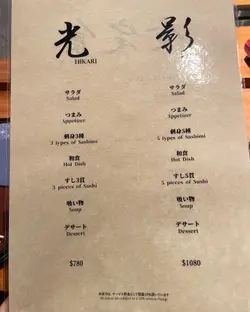 光
HIKARI
サラダ
Salad
つまみ
Appetizer
刺身3種
3 types of Sashimi
和食
Hot Dish
すし3貫
3 pieces of Sushi
吸い物
Soup
デザート
Dessert
$780
影
サラダ
Salad
つまみ
Appetizer
刺身5種
5 types of Sashimi
和食
Hot Dish
すし5貫
5 pieces of Sushi
吸い物
Soup
デザート
Dessert
$1080